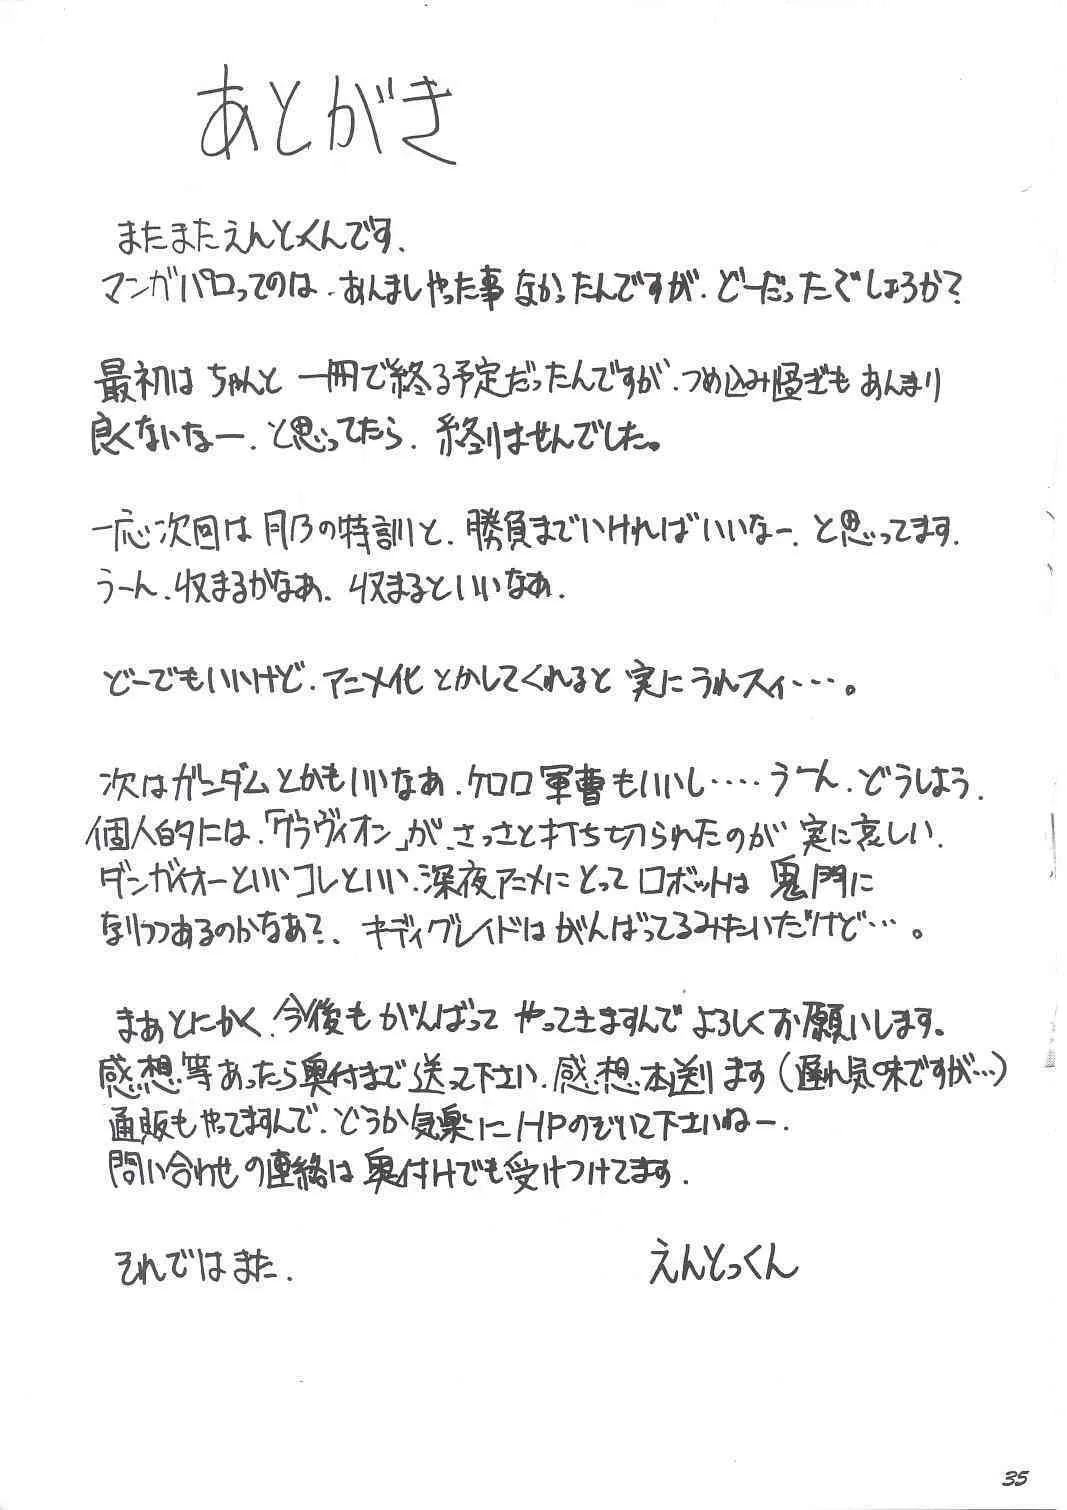 あとがき
またまたえんとっくんです.
マンガパロってのは.あんましやった事なかったんですが.どーだったでしょうか?
最初はちゃんと一冊で終る予定だったんですが.つめ込み過ぎもあんまり
良くないなー.と思ってたら.終りませんでした。
一応次回は月乃の特訓と.勝負までいければいいなー.と思ってます.
うーん.収まるかなぁ.収まるといいなぁ.
どーでもいいけど.アニメ化とかしてくれると実にうれスィ・・・。
次はガンダムとかもいいなぁ.ケロロ軍曹もいいし・・・・うーん.どうしよう.
個人的には.「グラヴィオン」が.さっさと打ち切られたのが実に哀しい.
ダンガイオーといいコレといい.深夜アニメにとってロボットは鬼門に
なりつつあるのかなあ?.キディグレイドはがんばってるみたいだけど・・・。
まぁとにかく.今後もがんばってやってきますんでよろしくお願いします。
感想等あったら奥付まで送って下さい.感想本送ります(遅れ気味ですが…)
通販もやってますんで.どうか気楽にHPのぞいて下さいねー.
問い合わせの連絡は奥付けでも受けつけてます.
それではまた.
えんとっくん
35